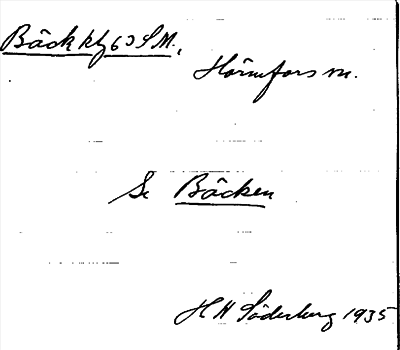 Bäck kbf 63 S M.,
Hörnefors sn.
Se Bäcken
H H Söderberg 1935